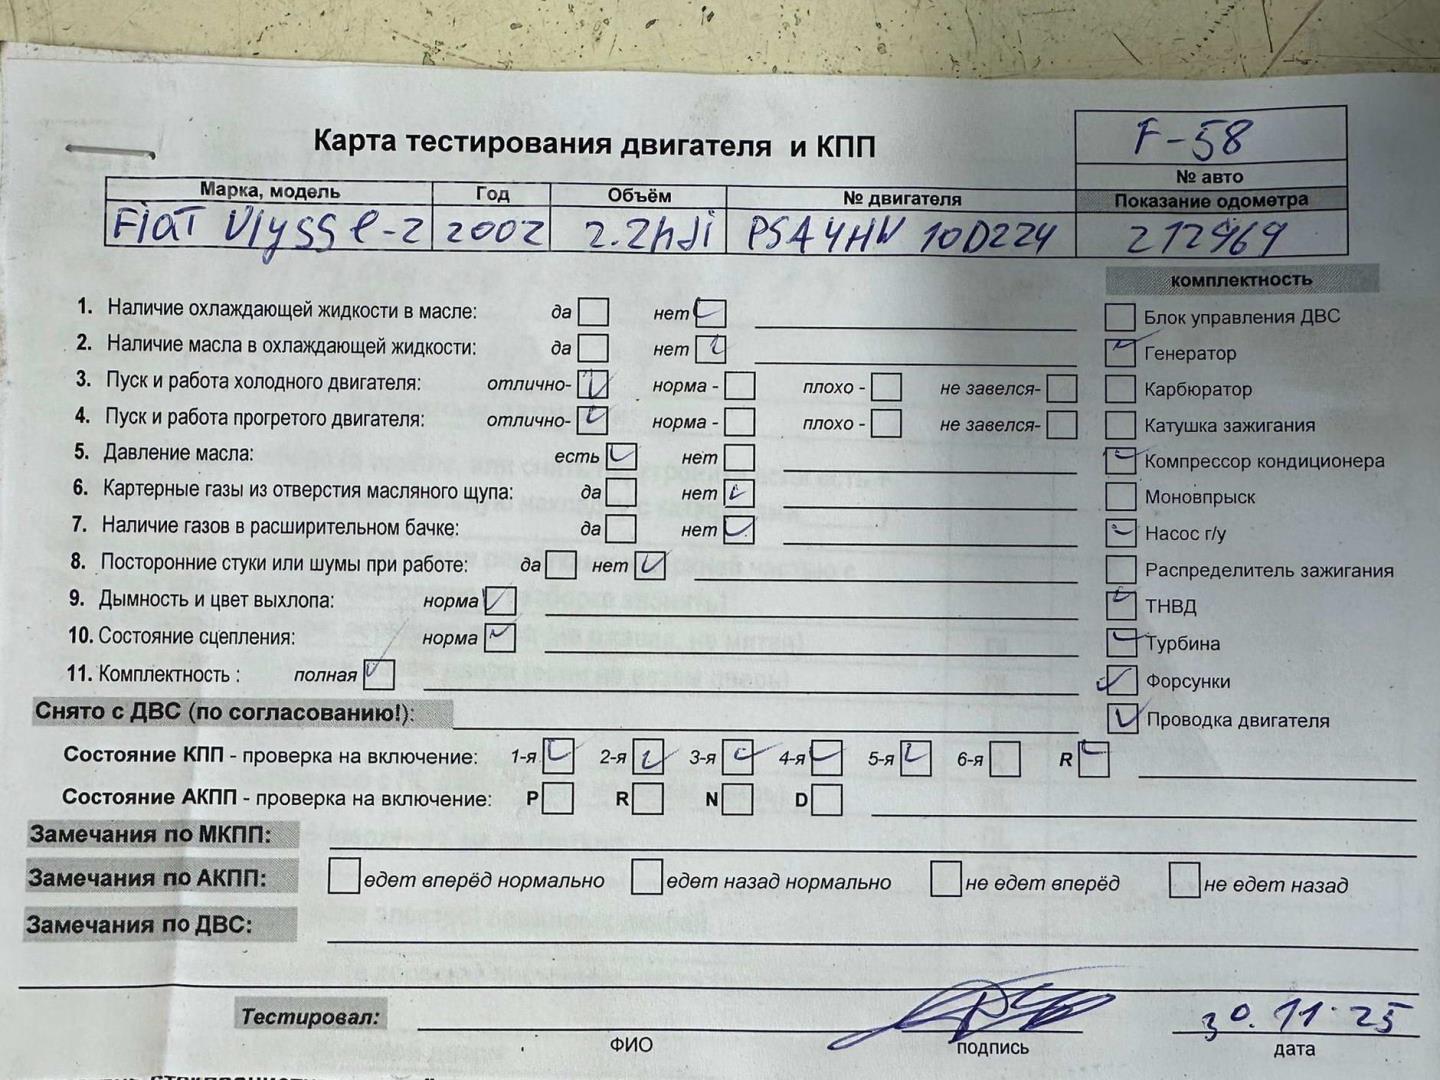 Карта тестирования двигателя и КПП
F-58
№ авто
Марка, модель Год Объём № двигателя Показание одометра
Fiat Ulysse-2 2002 2.2hdi PSA4HW 10D224 212969
комплектность
1. Наличие охлаждающей жидкости в масле: да нет
Блок управления ДВС
2. Наличие масла в охлаждающей жидкости: да нет
Генератор
3. Пуск и работа холодного двигателя: отлично- норма - плохо - не завелся-
Карбюратор
4. Пуск и работа прогретого двигателя: отлично- норма - плохо - не завелся-
Катушка зажигания
5. Давление масла: есть нет
Компрессор кондиционера
6. Картерные газы из отверстия масляного щупа: да нет
Моновпрыск
7. Наличие газов в расширительном бачке: да нет
Насос г/у
8. Посторонние стуки или шумы при работе: да нет
Распределитель зажигания
9. Дымность и цвет выхлопа: норма
ТНВД
10. Состояние сцепления: норма
Турбина
11. Комплектность : полная
Форсунки
Снято с ДВС (по согласованию!):
Проводка двигателя
Состояние КПП - проверка на включение: 1-я 2-я 3-я 4-я 5-я 6-я R
Состояние АКПП - проверка на включение: P R N D
Замечания по МКПП:
Замечания по АКПП: едет вперёд нормально едет назад нормально не едет вперёд не едет назад
Замечания по ДВС:
Тестировал: 30.11.25
ФИО подпись дата